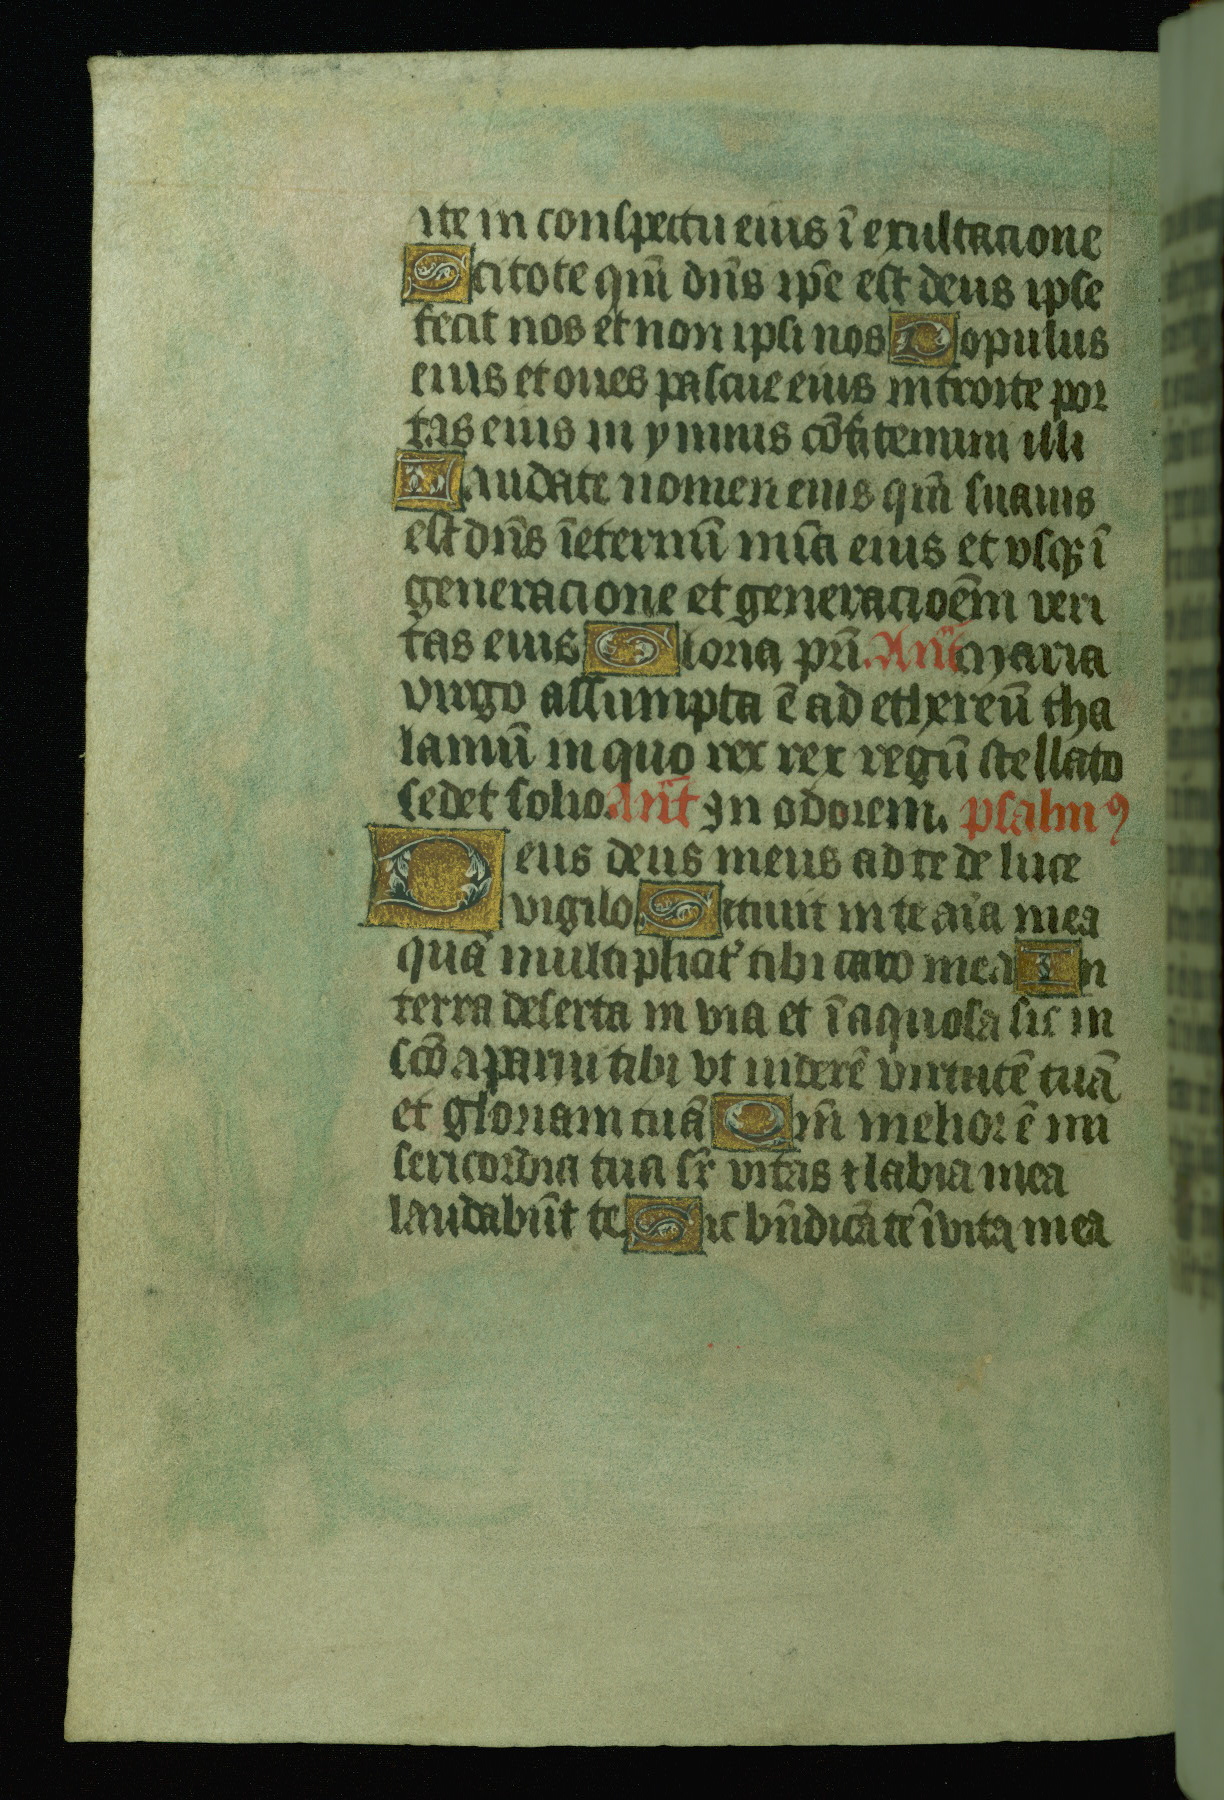 ite in conspectu eius ī exultacione
Scitote qm̄ dn̄s ip̄e est deus ipse
fecit nos et non ipsi nos Populus
eius et oues pascue eius introite por
tas eius in ymnis cōfitemini illi
Laudate nomen eius qm̄ suauis
est dn̄s īeternū mīa eius et vsqꝫ ī
generacione et generacioēm veri
tas eius Gloria pr̄i. Añt Maria
virgo assumpta ē ad ethereū tha
lamū in quo rex rex regū stellato
sedet solio. Añt In odorem. psalmꝰ
Deus deus meus ad te de luce
vigilo. Sitiuit in te aīa mea
quā multiplicit̾ tibi caro mea In
terra deserta in via et ī aquosa sic in
scō aparui tibi vt viderē virtutē tuā
et gloriam tuā Qm̄ melior ē mi
sericordia tua sr̄ vitas ⁊ labia mea
laudabūt te Sic bn̄dicā te ī vita mea